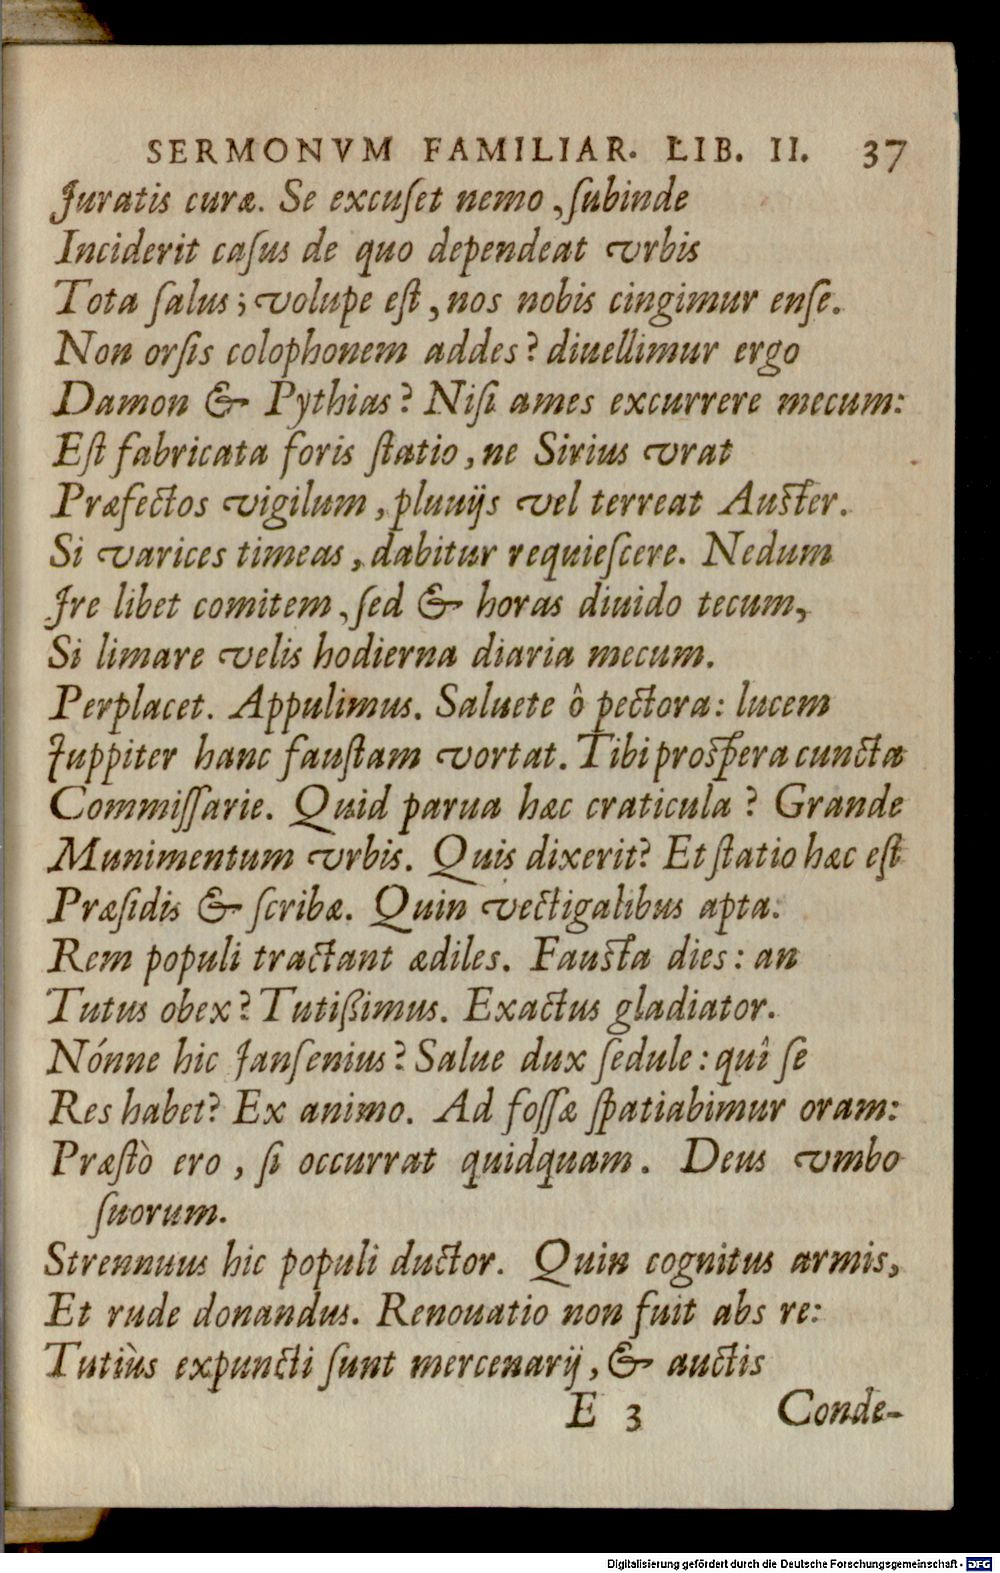 SERMONVM FAMILIAR. LIB. II. 37
Juratis curæ. Se excuſet nemo, ſubinde
Inciderit caſus de quo dependeat vrbis
Tota ſalus; volupe eſt, nos nobis cingimur enſe.
Non orſis colophonem addes? diuellimur ergo
Damon & Pythias? Niſi ames excurrere mecum:
Eſt fabricata foris ſtatio, ne Sirius vrat
Præfectos vigilum, pluuijs vel terreat Auſter.
Si varices timeas, dabitur requieſcere. Nedum
Jre libet comitem, ſed & horas diuido tecum,
Si limare velis hodierna diaria mecum.
Perplacet. Appulimus. Saluete ô pectora: lucem
Juppiter hanc fauſtam vortat. Tibi proſpera cuncta
Commiſſarie. Quid parua hæc craticula? Grande
Munimentum vrbis. Quis dixerit? Et ſtatio hæc eſt
Præſidis & ſcribæ. Quin vectigalibus apta.
Rem populi tractant ædiles. Fauſta dies: an
Tutus obex? Tutißimus. Exactus gladiator.
Nónne hic Janſenius? Salue dux ſedule: quî ſe
Res habet? Ex animo. Ad foſſæ ſpatiabimur oram:
Præſtò ero, ſi occurrat quidquam. Deus vmbo
ſuorum.
Strennuus hic populi ductor. Quin cognitus armis,
Et rude donandus. Renouatio non fuit abs re:
Tutiùs expuncti ſunt mercenarij, & auctis
E 3 Conde-
Digitalisierung gefördert durch die Deutsche Forschungsgemeinschaft - DFG